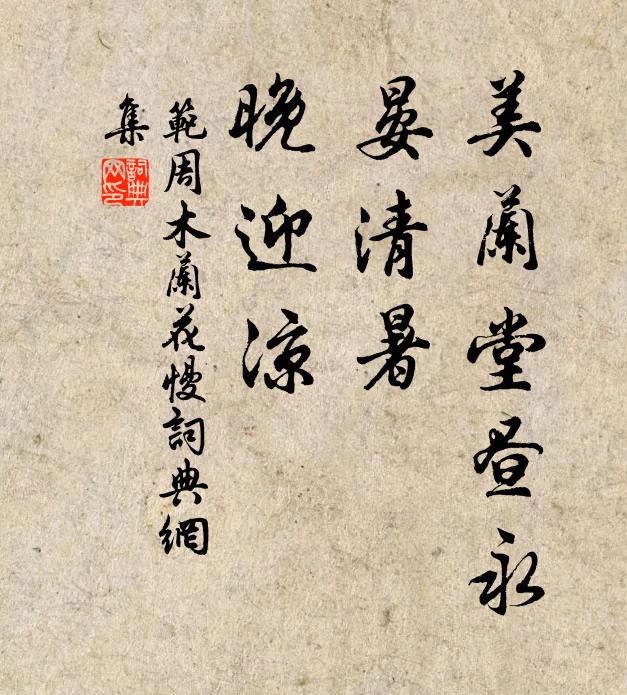 美蘭堂昼永
晏清暑
晚迎涼
範周木蘭花慢詞典網
集
詞典
网印